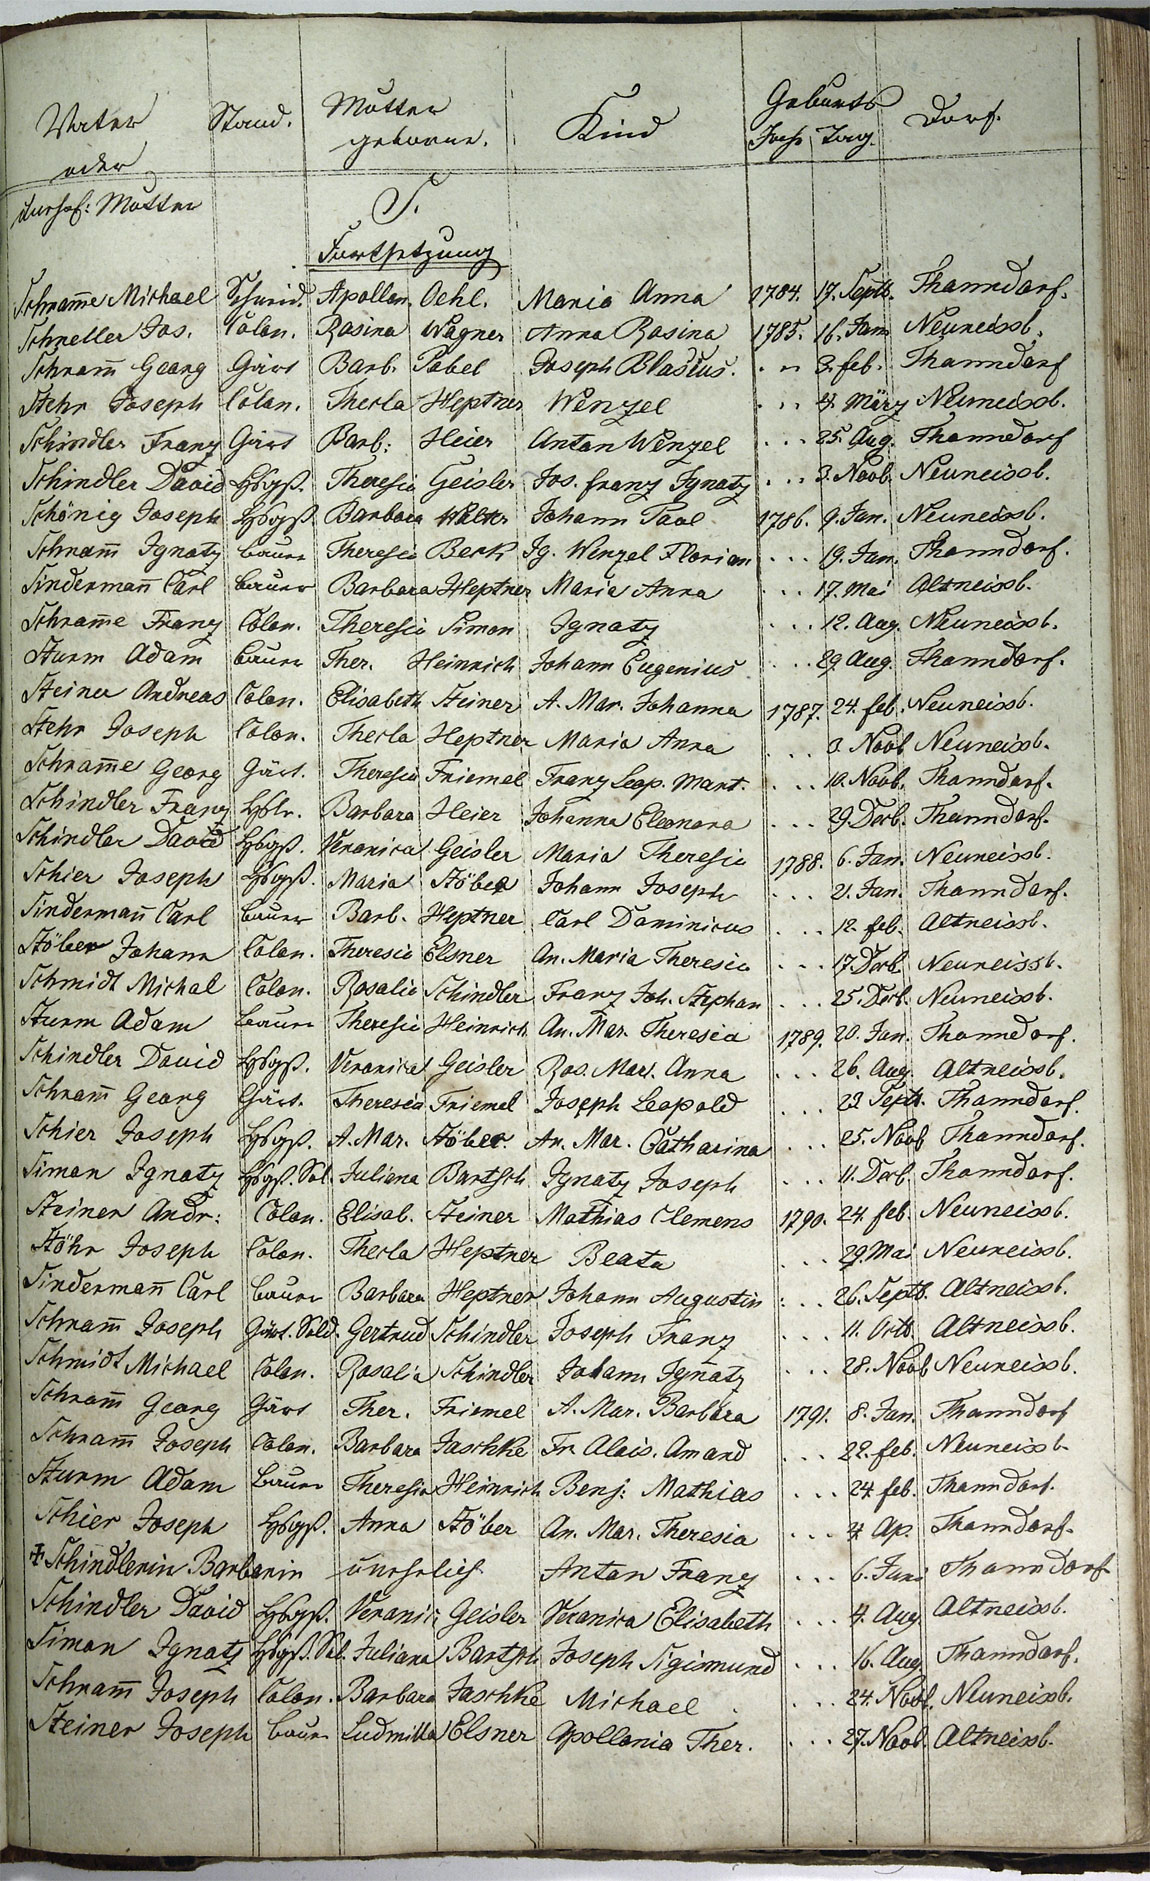 Vater Stand. Mutter Kind Geburts Dorf.
oder geborne. Jahr Tag.
unehel: Mutter
S.
Fortsetzung
Schram̄e Michael Schmid. Apollon. Oehl. Maria Anna 1784. 17. Septb. Thanndorf.
Schneller Jos. Colon. Rosina Wagner Anna Rosina 1785. 16. Jan Neuneissb.
Schram̄ Georg Gärt Barb. Pabel Joseph Blasius. 3. feb. Thanndorf
Stehr Joseph Colon. Thecla Heptner Wenzel 4. März Neuneissb.
Schindler Franz Gärt Barb: Heier Anton Wenzel 25. Aug. Thanndorf
Schindler David Hsbgß. Theresia Geisler Jos. franz Ignatz 3. Novb. Neuneissb.
Schönig Joseph Hsbgß. Barbara Walter Johann Paul 1786. 9. Jan. Neuneissb.
Schram̄ Ignatz bauer Theresia Berk Ig. Wenzel Florian 19. Jan. Thanndorf.
Sinderman̄ Carl bauer Barbara Heptner Maria Anna 17. Mai Altneissb.
Schram̄e Franz Colon. Theresia Simon Ignatz 12. Aug. Neuneissb.
Sturm Adam bauer Ther. Heinrich Johann Eugenius 29. Aug. Thanndorf.
Steiner Andreas Colon. Elisabeth Steiner A. Mar. Johanna 1787. 24. feb. Neuneissb.
Stehr Joseph Colon. Thecla Heptner Maria Anna 3. Novb Neuneissb.
Schram̄e Georg Gärt. Theresia Friemel Franz Leop. Mart. 10. Novb. Thanndorf.
Schindler Franz Hslr. Barbara Heier Johanna Eleonora 29. Decb. Thanndorf.
Schindler David Hsbgß. Veronica Geisler Maria Theresia 1788. 6. Jan. Neuneissb.
Schier Joseph Hsbgß. Maria Stöber Johann Joseph 21. Jan. Thanndorf.
Sinderman̄ Carl bauer Barb. Heptner Carl Dominicus 12. feb. Altneissb.
Stöber Johann Colon. Theresia Elsner An. Maria Theresia 17. Decb. Neuneissb.
Schmidt Michal Colon. Rosalia Schindler Franz Joh. Stephan 25. Decb. Neuneissb.
Sturm Adam bauer Theresia Heinrich An. Mar. Theresia 1789. 20. Jan. Thanndorf.
Schindler David Hsbgß. Veronica Geisler Ros. Mar. Anna 26. Aug. Altneissb.
Schram̄ Georg Gärt. Theresia Friemel Joseph Leopold 23. Septb. Thanndorf.
Schier Joseph Hsbgß. A. Mar. Stöber. An. Mar. Catharina 25. Novb Thanndorf.
Simon Ignatz Hsbgß. Sol. Juliana Bartsch Ignatz Joseph 11. Decb. Thanndorf.
Steiner Andr: Colon. Elisab. Steiner Mathias Clemens 1790. 24. feb. Neuneissb.
Stöhr Joseph Colon. Thecla Heptner Beata 29. Mai Neuneissb.
Sinderman̄ Carl bauer Barbara Heptner Johann Augustin 26. Septb. Altneissb.
Schram̄ Joseph Gärt. Sold. Gertrud Schindler Joseph Franz 11. Octb Altneissb.
Schmidt Michael Colon. Rosalia Schindler Johann Ignatz 28. Novb Neuneissb.
Schram̄ Georg Gärt Ther. Friemel A. Mar. Barbara 1791. 8. Jan. Thanndorf
Schram̄ Joseph Colon. Barbara Jaschke Fr. Alois. Amand 22. feb. Neuneissb
Sturm Adam bauer Theresia Heinrich Benj: Mathias 24. feb. Thanndorf.
Schier Joseph Hsbgß. Anna Stöber An. Mar. Theresia 4. Ap. Thanndorf.
‡ Schindlerin Barbarin unehrlich Anton Franz 6. Juni Thanndorf
Schindler David Hsbgß. Veronic: Geisler Veronica Elisabeth 4. Aug Altneissb.
Simon Ignatz Hsbgß. Sol. Juliana Bartsch Joseph Sigismund 16. Aug Thanndorf.
Schram̄ Joseph Colon. Barbara Jaschke Michael 24. Novb. Neuneissb.
Steiner Joseph bauer Ludmilla Elsner Apollonia Ther. 27. Novb. Altneissb.